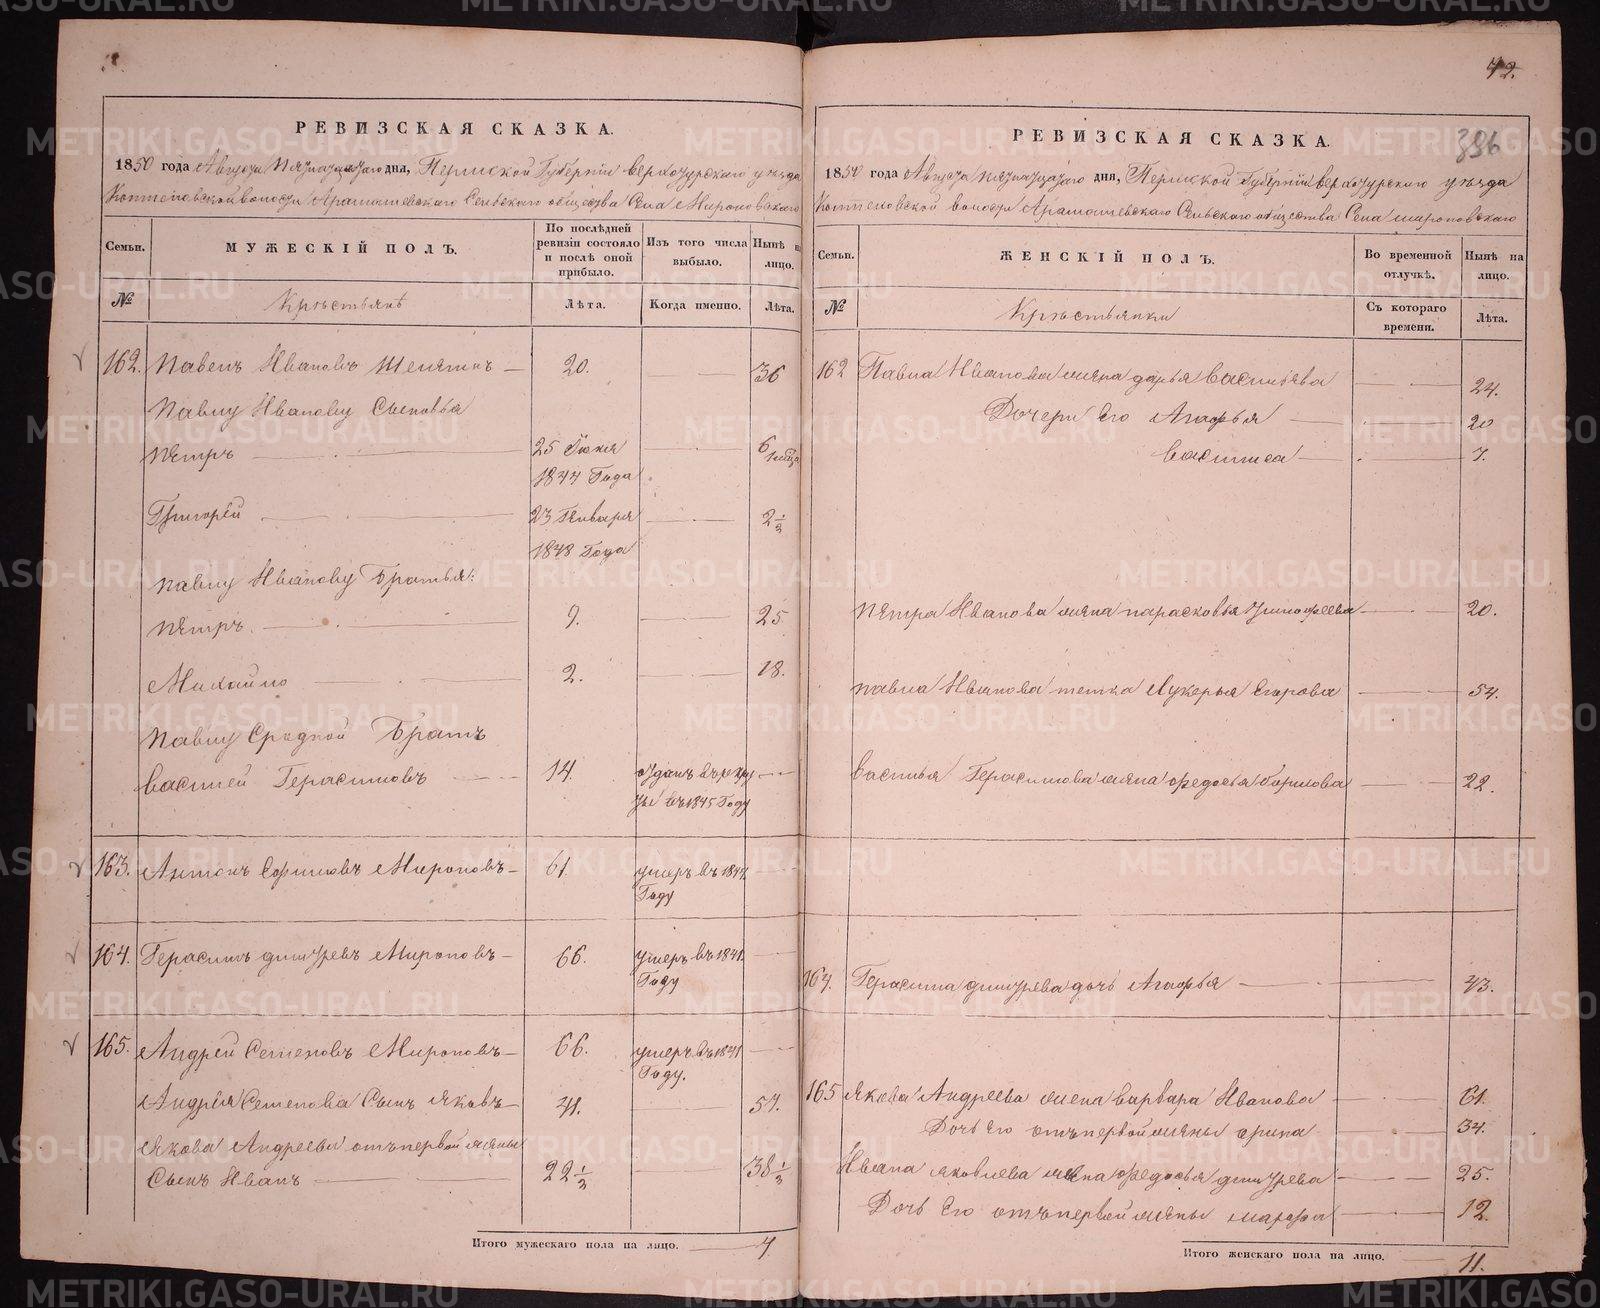 72.
396
РЕВИЗСКАЯ СКАЗКА.
1850 года Августа пятнадцатаго дня, Пермской Губерніи верхотурскаго уезда
Коптеловской волости Арамашевскаго Сельскаго общества Села Мироновскаго
Семьи. МУЖЕСКІЙ ПОЛЪ. По послѣдней ревизіи состояло и послѣ оной прибыло. Изъ того числа выбыло. Нынѣ на лицо.
№ Крестьянѣ Лѣта. Когда именно. Лѣта.
162. Павелъ Ивановъ 20. 36
Павлу Иванову Сыновья
Петръ 25 Іюня 1844 Года 6
Григорей 23 Генваря 1848 Года 2 1/2
Павлу Иванову Братья:
Петръ. 9. 25
Михайло 2. 18.
Павлу Сродной Братъ
Василей Герасимовъ 14. отданъ въ рекруты въ 1845 Году
163. Антонъ Мироновъ 61. умеръ въ Году
164. Герасимъ Мироновъ 66. умеръ въ 1841 Году
165. Андрей Семеновъ Мироновъ 66. умеръ въ 1841 Году.
Андрея Семенова Сынъ Яковъ 41. 57.
Якова Андреева отъ первой жены
Сынъ Иванъ 22 1/2 38 1/2
Итого мужескаго пола на лицо. 7
РЕВИЗСКАЯ СКАЗКА.
1850 года Августа пятнадцатаго дня, Пермской Губерніи верхотурскаго уезда
Коптеловской волости Арамашевскаго Сельскаго общества Села Мироновскаго
Семьи. ЖЕНСКІЙ ПОЛЪ. Во временной отлучкѣ. Нынѣ на лицо.
№ Крестьянки Съ котораго времени. Лѣта.
162 Павла Иванова жена дарья васильева 24.
Дочери Его Агафья 20
василиса 7.
Петра Иванова жена парасковья 20.
павла Иванова тетка Лукерья Егорова 54.
василья Герасимова жена федосья 22.
164. Герасима дочь Агафья 43.
165 Якова Андреева жена варвара Иванова 61.
Дочь Его отъ первой жены орина 34.
Ивана яковлева жена федосья 25.
Дочь Его отъ первой жены марфа 12.
Итого женскаго пола на лицо. 11.
METRIKI.GASO-URAL.RU